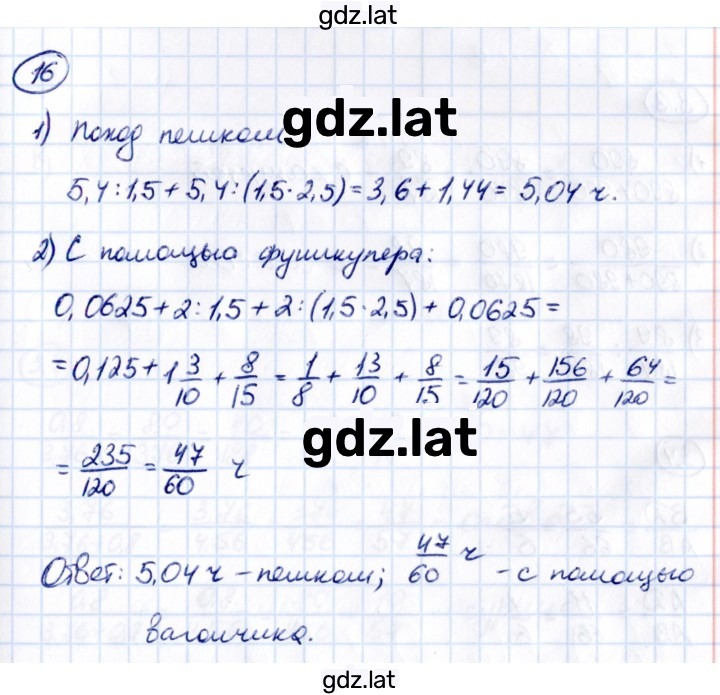 gdz.lat
16
1) Поход пешком gdz.lat
5,4:1,5 + 5,4:(1,5·2,5) = 3,6 + 1,44 = 5,04 ч.
2) С помощью фуникулера:
0,0625 + 2:1,5 + 2:(1,5·2,5) + 0,0625 =
= 0,125 + 1 3/10 + 8/15 = 1/8 + 13/10 + 8/15 = 15/120 + 156/120 + 64/120 =
gdz.lat
= 235/120 = 47/60 ч
Ответ: 5,04 ч - пешком; 47/60 ч - с помощью
вагончика.
gdz.lat